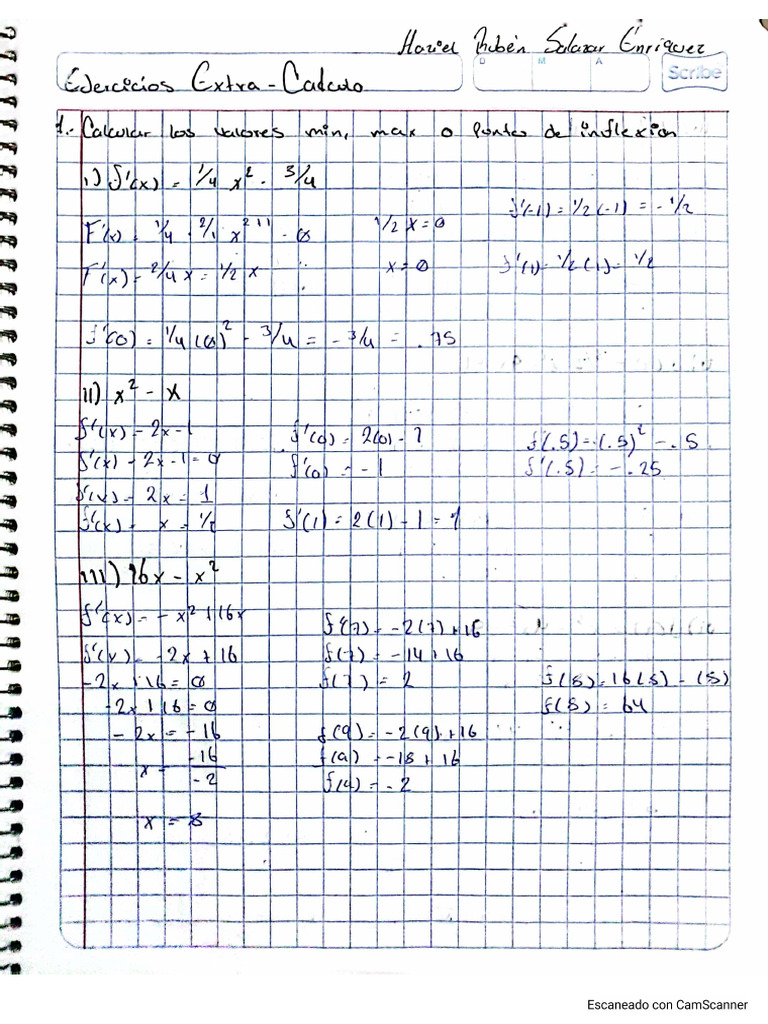 Haziel Rubén Salazar Enriquez
Ejercicios Extra - Calculo
D M A
Scribe
1.- Calcular los valores min, max o puntos de inflexion
i) f'(x) = 1/4 x² - 3/4
F'(x) = 1/4 · 2/1 x²⁻¹ - 0
F'(x) = 2/4 x = 1/2 x
1/2 x = 0
x = 0
f'(-1) = 1/2 (-1) = - 1/2
f'(1) = 1/2 (1) = 1/2
f'(0) = 1/4 (0)² - 3/4 = - 3/4 = . 75
ii) x² - x
f'(x) = 2x - 1
f'(x) = 2x - 1 = 0
f'(x) = 2x = 1
f'(x) = x = 1/2
f'(0) = 2(0) - 1
f'(0) = - 1
f'(1) = 2(1) - 1 = 1
f'(.5) = (.5)² - .5
f'(.5) = - .25
iii) 16x - x²
f'(x) = - x² + 16x
f'(x) = - 2x + 16
- 2x + 16 = 0
- 2x + 16 = 0
- 2x = - 16
x = -16/-2
x = 8
f'(7) = - 2(7) + 16
f(7) = - 14 + 16
f(7) = 2
f(9) = - 2(9) + 16
f(9) = - 18 + 16
f(9) = - 2
f(8) = 16(8) - (8)
f(8) = 64
Escaneado con CamScanner